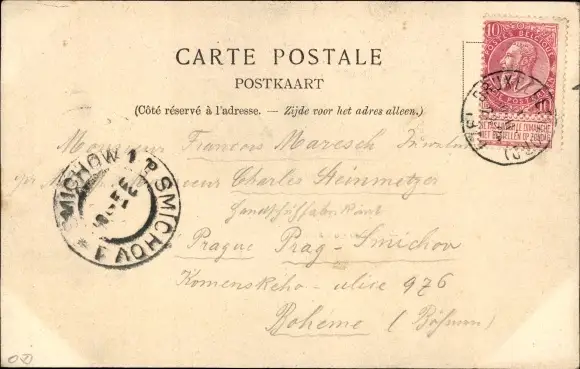 CARTE POSTALE
POSTKAART
(Côté réservé à l'adresse. — Zijde voor het adres alleen.)
10
POSTES BELGIQUE
NE PAS LIVRER LE DIMANCHE
NIET BESTELLEN OP ZONDAG
Monsieur François Maresch
Charles Steinmetzer
Handschuhfabrikant
Prague Prag - Smichov
Komenského - ulice 976
Bohême (Böhmen)
SMICHOW 1 SMÍCHOV 1